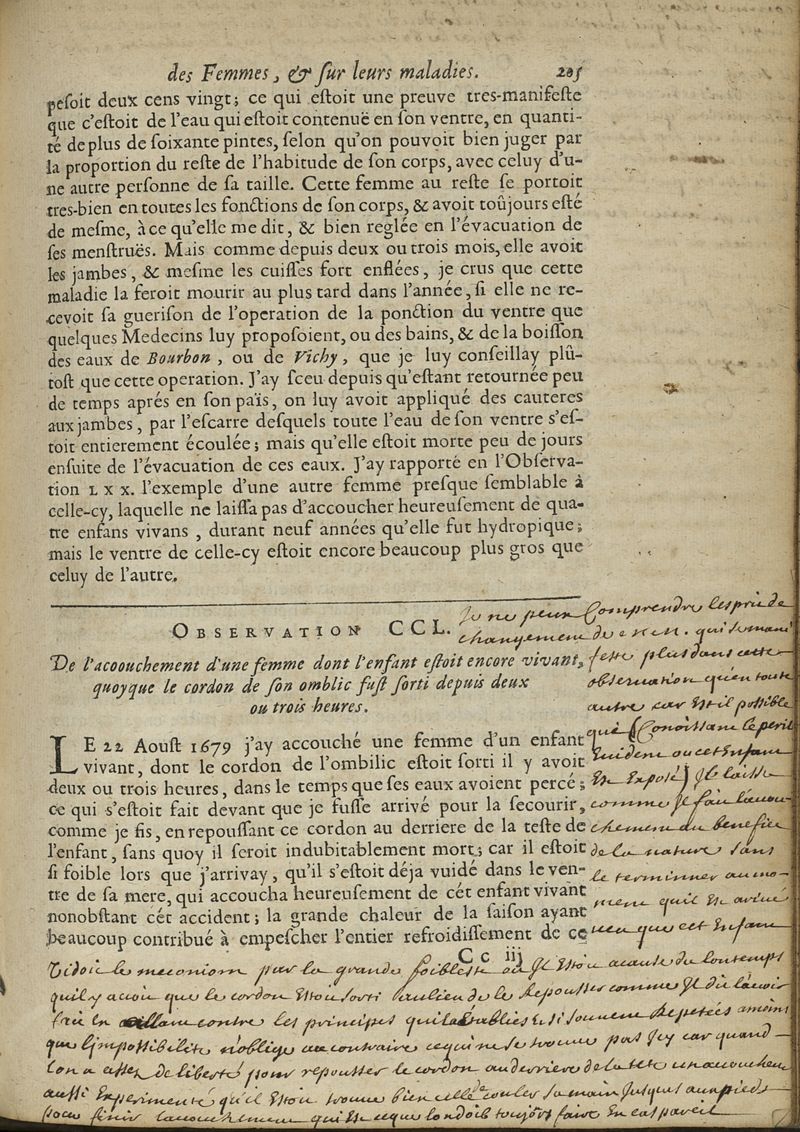 des Femmes, & ſur leurs maladies. 205
peſoit deux cens vingt; ce qui eſtoit une preuve tres-manifeſte
que c'eſtoit de l'eau qui eſtoit contenuë en ſon ventre, en quanti-
té de plus de ſoixante pintes, ſelon qu'on pouvoit bien juger par
la proportion du reſte de l'habitude de ſon corps, avec celuy d'u-
ne autre perſonne de ſa taille. Cette femme au reſte ſe portoit
tres-bien en toutes les fonctions de ſon corps, & avoit toûjours eſté
de meſme, à ce qu'elle me dit, & bien reglée en l'évacuation de
ſes menſtruës. Mais comme depuis deux ou trois mois, elle avoit
les jambes, & meſme les cuiſſes fort enflées, je crus que cette
maladie la feroit mourir au plus tard dans l'année, ſi elle ne re-
cevoit ſa gueriſon de l'operation de la ponction du ventre que
quelques Medecins luy propoſoient, ou des bains, & de la boiſſon
des eaux de Bourbon, ou de Vichy, que je luy conſeillay plû-
toſt que cette operation. J'ay ſceu depuis qu'eſtant retournée peu
de temps aprés en ſon païs, on luy avoit appliqué des cauteres
aux jambes, par l'eſcarre deſquels toute l'eau de ſon ventre s'eſ-
toit entierement écoulée; mais qu'elle eſtoit morte peu de jours
enſuite de l'évacuation de ces eaux. J'ay rapporté en l'Obſerva-
tion LXX. l'exemple d'une autre femme preſque ſemblable à
celle-cy, laquelle ne laiſſa pas d'accoucher heureuſement de qua-
tre enfans vivans, durant neuf années qu'elle fut hydropique;
mais le ventre de celle-cy eſtoit encore beaucoup plus gros que
celuy de l'autre.
OBSERVATION CCL.
De l'acoouchement d'une femme dont l'enfant eſtoit encore vivant,
quoyque le cordon de ſon omblic fuſt ſorti depuis deux
ou trois heures.
LE 22 Aouſt 1679 j'ay accouché une femme d'un enfant
vivant, dont le cordon de l'ombilic eſtoit ſorti il y avoit
deux ou trois heures, dans le temps que ſes eaux avoient percé;
ce qui s'eſtoit fait devant que je fuſſe arrivé pour la ſecourir,
comme je fis, en repouſſant ce cordon au derriere de la teſte de
l'enfant, ſans quoy il ſeroit indubitablement mort; car il eſtoit
ſi foible lors que j'arrivay, qu'il s'eſtoit déja vuidé dans le ven-
tre de ſa mere, qui accoucha heureuſement de cét enfant vivant
nonobſtant cét accident; la grande chaleur de la ſaiſon ayant
beaucoup contribué à empeſcher l'entier refroidiſſement de ce
Cc iij
Je ne peux Comprendre lesprit de
changement de qui se mani
feste plus dans cette
observation qu'en toute
autre car Est il possible
que (Conoissant le peril
Evident ou cet Enfant
Est Exposé) Il laisse
comme Il fait laccou
chement du benefice
de la nature sans
le terminner au mo
ment quil Est arivé
veu que cet Enfant
vidoit le meconiom par la grande foiblesse ou Il Estoit a cause du lontemps
quil y avoit que le cordon Estoit sorti au lieu de le Repousser comme Il dit lavoir
fait En allant contre les principes quil a Establies Et si souvent Repetées a moins
que limpossibilité noblige au contraire ce qui ne se trouve pas Icy car quand
lon a assez de liberté pour repousser le cordon au derriere de la tete
aussi Experimenté quil Estoit trouve bien celle de couler sa main Jusques aux pieds
pour finir laccouchement qui Est ce que lon doit toujours faire En cas pareil